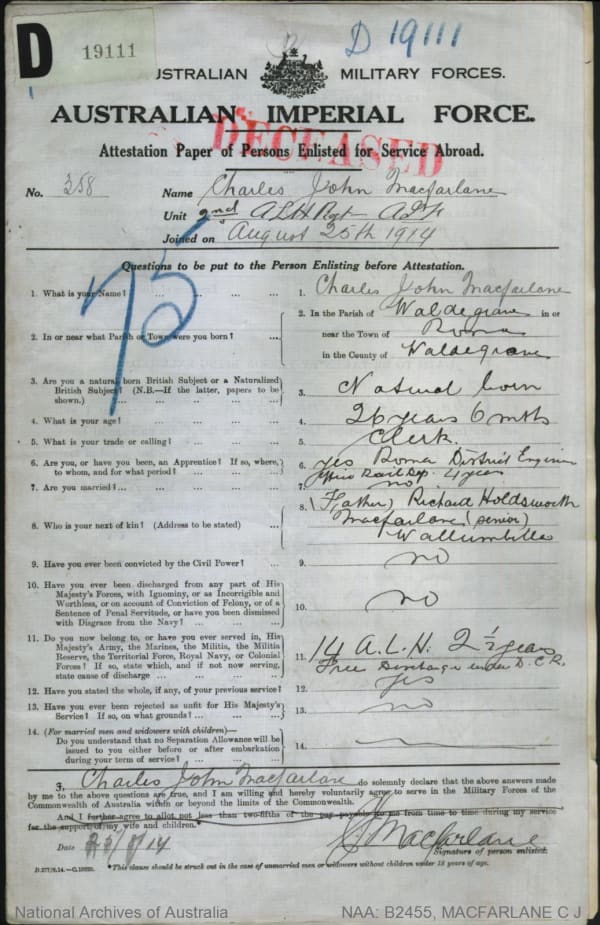 D 19111 D 19111
AUSTRALIAN MILITARY FORCES.
AUSTRALIAN IMPERIAL FORCE.
DECEASED
Attestation Paper of Persons Enlisted for Service Abroad.
No. 358 Name Charles John Macfarlane
Unit 2nd A L H Rgt A.I.F
Joined on August 25th 1914
75
Questions to be put to the Person Enlisting before Attestation.
1. What is your Name? ... ... ... ... 1. Charles John Macfarlane
2. In or near what Parish or Town were you born? ... 2. In the Parish of Waldegrave in or
near the Town of Roma
in the County of Waldegrave
3. Are you a natural born British Subject or a Naturalized
British Subject? (N.B.—If the latter, papers to be
shown.) ... ... ... ... 3. Natural born
4. What is your age? ... ... ... ... 4. 26 years 6 mths
5. What is your trade or calling? ... ... ... 5. Clerk.
6. Are you, or have you been, an Apprentice? If so, where,
to whom, and for what period? ... ... ... 6. yes Roma District Engineer
Office Rail Dep. 4 years
7. Are you married? ... ... ... ... 7. no
8. Who is your next of kin? (Address to be stated) ... 8. (Father) Richard Holdsworth
Macfarlane (senior)
Wallumbilla
9. Have you ever been convicted by the Civil Power? ... 9. no
10. Have you ever been discharged from any part of His
Majesty's Forces, with Ignominy, or as Incorrigible and
Worthless, or on account of Conviction of Felony, or of a
Sentence of Penal Servitude, or have you been dismissed
with Disgrace from the Navy? ... ... ... 10. no
11. Do you now belong to, or have you ever served in, His
Majesty's Army, the Marines, the Militia, the Militia
Reserve, the Territorial Force, Royal Navy, or Colonial
Forces? If so, state which, and if not now serving,
state cause of discharge ... ... ... 11. 14 A.L.H. 2½ years
Free Discharge under D.C.R.
12. Have you stated the whole, if any, of your previous service? 12. yes
13. Have you ever been rejected as unfit for His Majesty's
Service? If so, on what grounds? ... ... ... 13. no
14. (For married men and widowers with children)—
Do you understand that no Separation Allowance will be
issued to you either before or after embarkation
during your term of service? ... ... ... 14.
I, Charles John Macfarlane do solemnly declare that the above answers made
by me to the above questions are true, and I am willing and hereby voluntarily agree to serve in the Military Forces of the
Commonwealth of Australia within or beyond the limits of the Commonwealth.
And I further agree to allot not less than two-fifths of the pay payable to me from time to time during my service
for the support of my wife and children.*
Date 25/8/14 C J Macfarlane
Signature of person enlisted.
*This clause should be struck out in the case of unmarried men or widowers without children under 18 years of age.
National Archives of Australia NAA: B2455, MACFARLANE C J